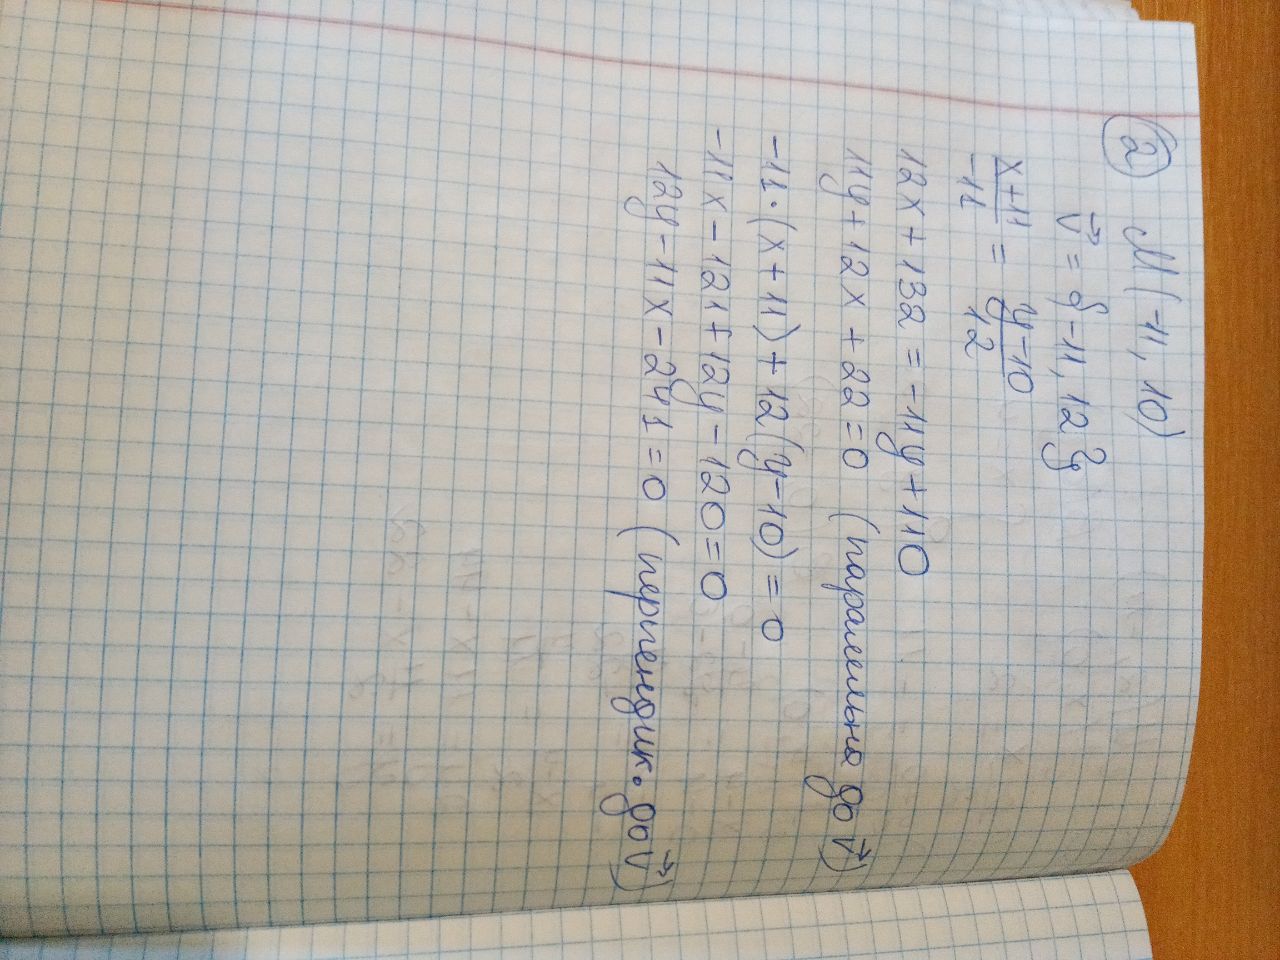 2 M(-11, 10)
v⃗ = {-11, 12}
(x+11)/(-11) = (y-10)/12
12x+132 = -11y+110
11y+12x+22=0 (паралельна до v⃗)
-11·(x+11)+12(y-10)=0
-11x-121+12y-120=0
12y-11x-241=0 (перпендик. до v⃗)